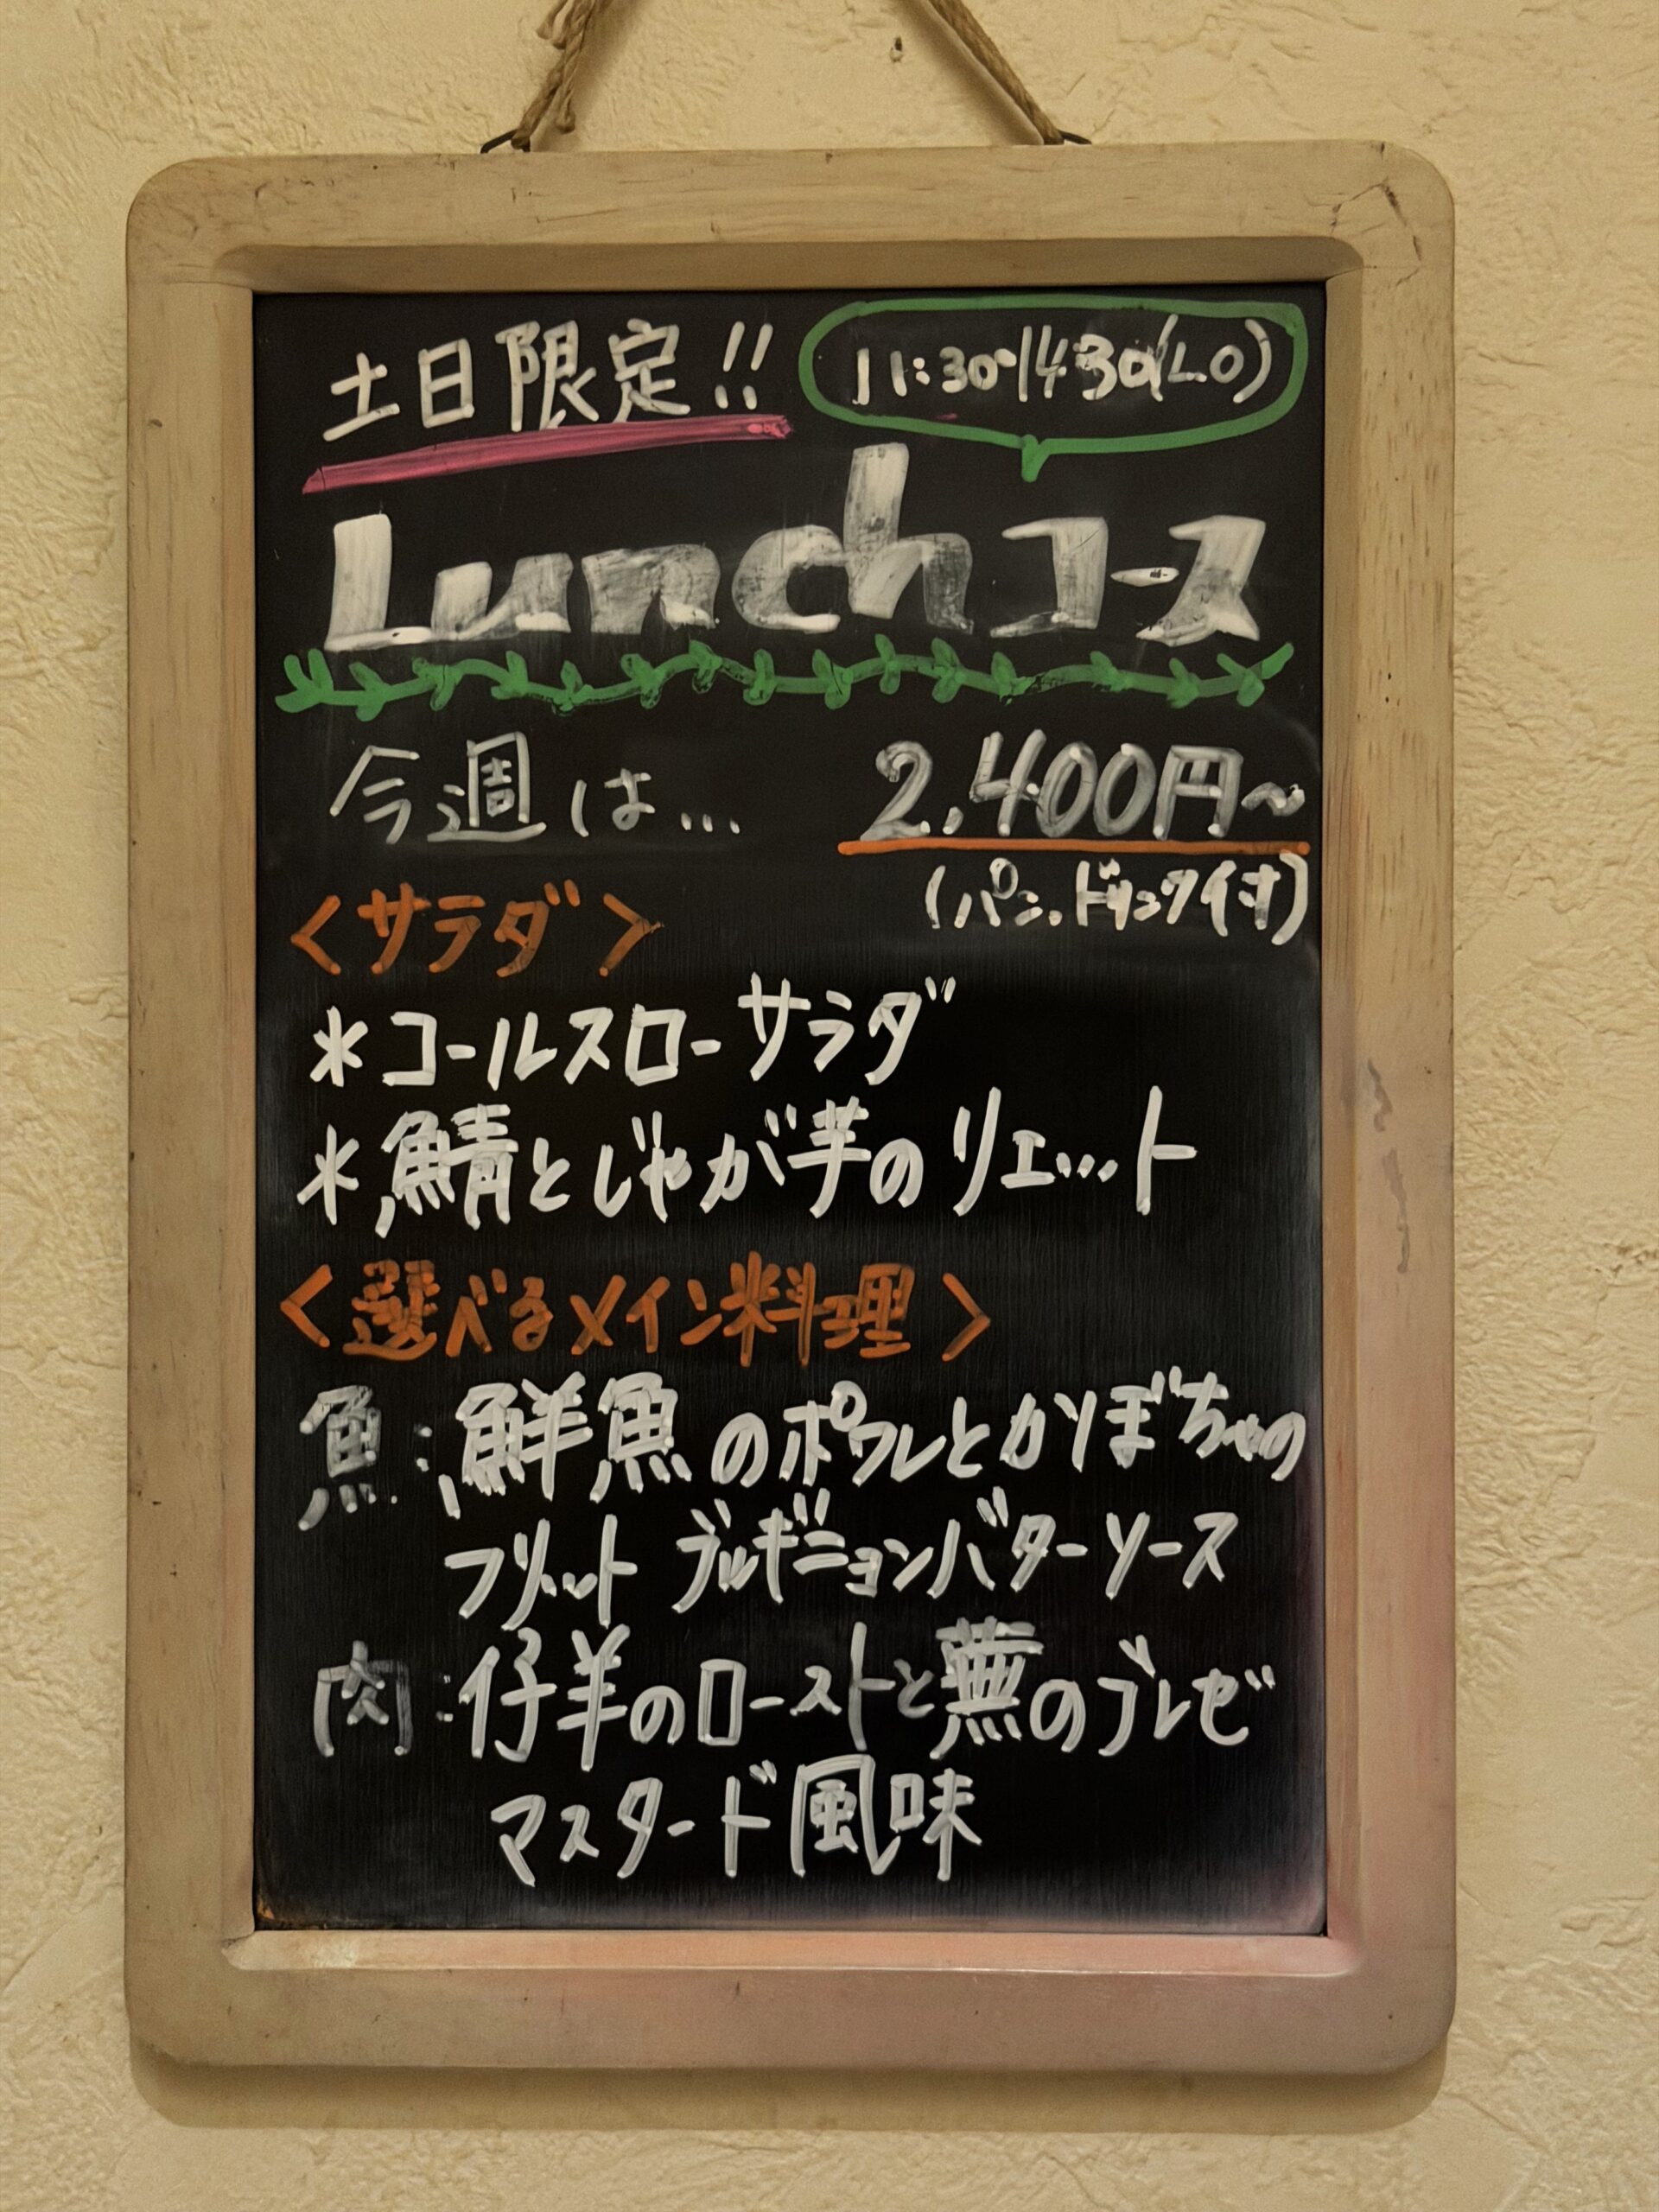 土日限定!!
11:30~14:30(L.O)
Lunchコース
今週は...
2,400円~
(パン、ドリンク付)
<サラダ>
*コールスローサラダ
*鯖とじゃが芋のリエット
<選べるメイン料理>
魚:鮮魚のポワレとかぼちゃの
フリット ブルギニョンバターソース
肉:仔羊のローストと蕪のブレゼ
マスタード風味